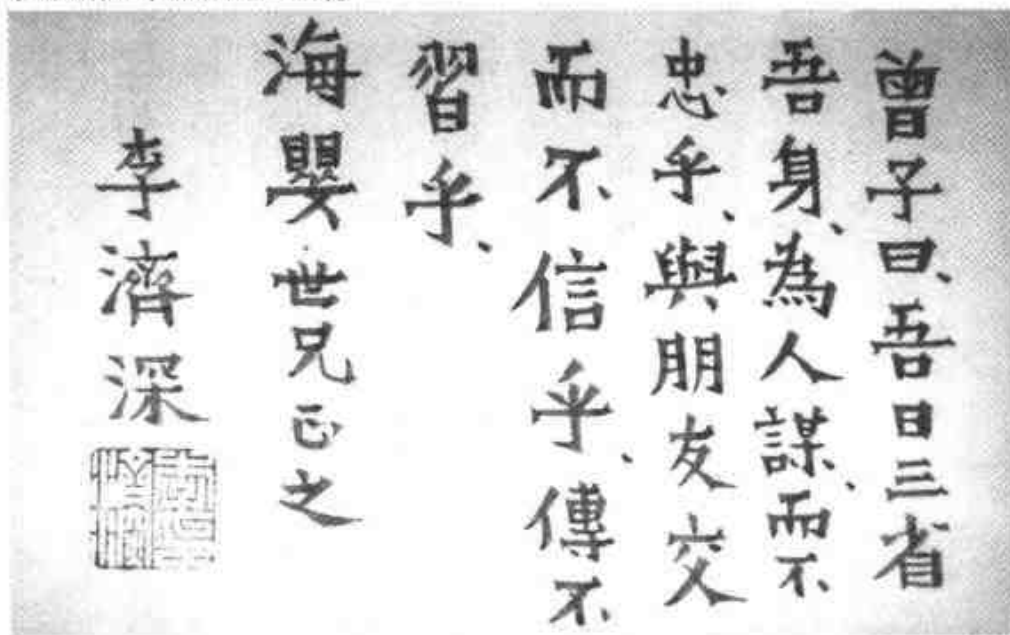 曾子曰、吾日三省
吾身、為人謀、而不
忠乎、與朋友交
而不信乎、傳不
習乎、
海嬰世兄正之
李濟深